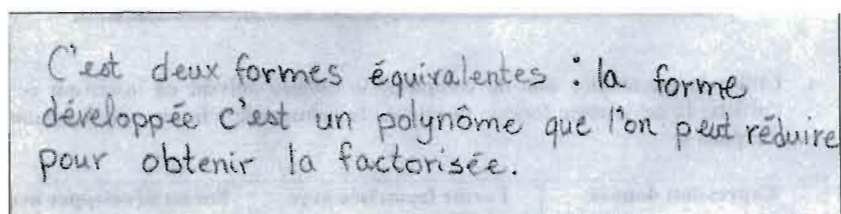 C'est deux formes équivalentes : la forme
développée c'est un polynôme que l'on peut réduire
pour obtenir la factorisée.